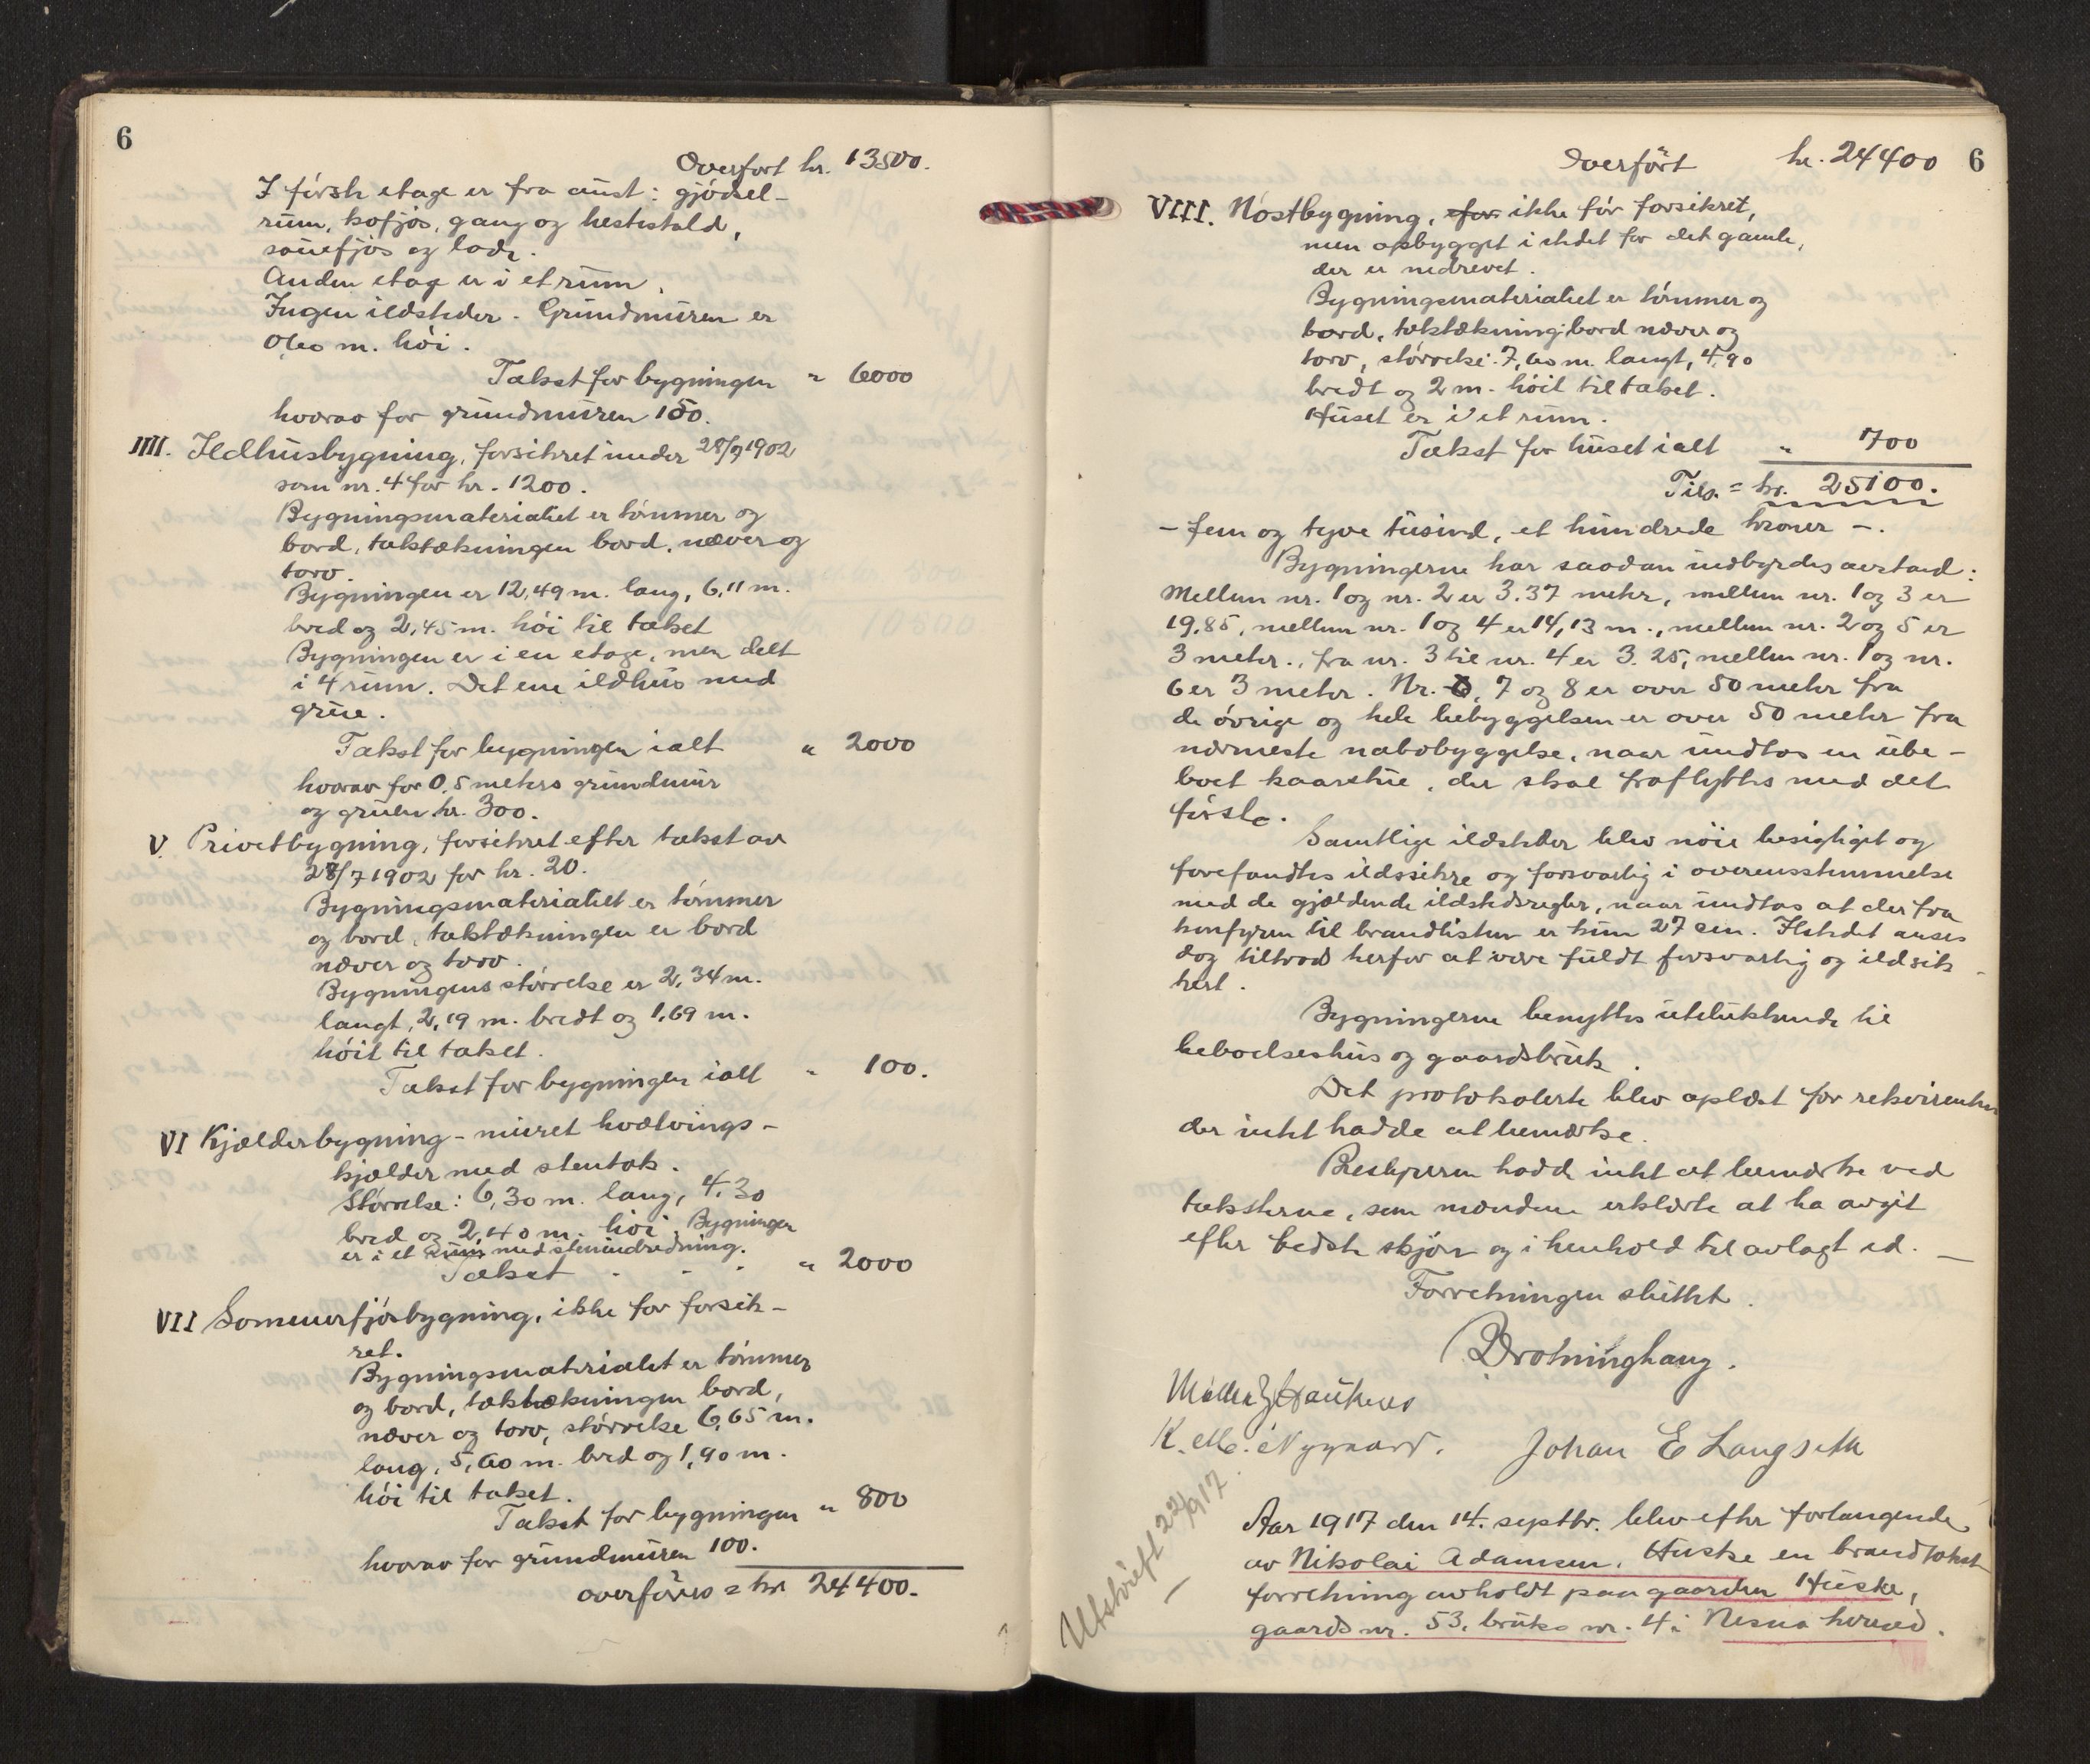 6
Overført kr. 13500.
I første etage er fra aust: gjødsel-
rum, kofjøs, gang og hestestald,
sauefjøs og lade.
Anden etage er i et rum.
Ingen ildsteder. Grundmuren er
0,60 m. høi.
Takst for bygningen " 6000
hvorav for grundmuren 150.
IIII. Ildhusbygning, forsikret under 28/7 1902
som nr. 4 for kr. 1200.
Bygningsmaterialiet er tømmer og
bord, taktækningen bord, næver og
torv.
Bygningen er 12,49 m. lang, 6,11 m.
bred og 2,45 m. høi til taket
Bygningen er i en etage, men delt
i 4 rum. Det ene ildhus med
grue.
Takst for bygningen ialt " 2000
hvorav for 0,5 meters grundmur
og gruen kr. 300.
V. Privetbygning, forsikret efter takst av
28/7 1902 for kr. 20.
Bygningsmaterialiet er tømmer
og bord, taktækningen er bord
næver og torv.
Bygningens størrelse er 2,34 m.
langt, 2,19 m. bredt og 1,69 m.
høit til taket.
Takst for bygningen ialt " 100.
VI Kjælderbygning - muret hvælvings-
kjælder med stentak.
Størrelse: 6,30 m. lang, 4,30
bred og 2,40 m. høi. Bygningen
er i et rum med stenindredning.
Takst - - - " 2000
VII Sommerfjøsbygning, ikke før forsik-
ret.
Bygningsmaterialet er tømmer
og bord, taktækningen bord,
næver og torv, størrelse 6,65 m.
lang, 5,60 m. bred og 1,90 m.
høi til taket.
Takst for bygningen " 800
hvorav for grundmuren 100.
overføres = kr 24400.
Overført kr. 24400 6
VIII. Nøstbygning, ikke før forsikret,
men opbygget i stedet for det gamle,
der er nedrevet.
Bygningsmaterialiet er tømmer og
bord, taktækning: bord næver og
torv, størrelse: 7,60 m. langt, 4,90
bredt og 2 m. høit til taket.
Huset er i et rum.
Takst for huset ialt " 700
Tils. = kr. 25100.
- fem og tyve tusind, et hundrede kroner -.
Bygningerne har saadan indbyrdes avstand:
Mellem nr. 1 og nr. 2 er 3.37 meter, mellem nr. 1 og 3 er
19,85, mellem nr. 1 og 4 er 14,13 m., mellem nr. 2 og 5 er
3 meter., fra nr. 3 til nr. 4 er 3.25, mellem nr. 1 og nr.
6 er 3 meter. Nr. 7 og 8 er over 50 meter fra
de øvrige og hele bebyggelsen er over 50 meter fra
nærmeste nabobyggelse, naar undtas en ube-
boet kaarstue, der skal fraflyttes med det
første.
Samtlige ildsteder blev nøie besigtiget og
forefandtes ildssikre og forsvarlig i overensstemmelse
med de gjældende ildstedsregler, naar undtas at der fra
komfyren til brandlisten er kun 27 cm. Ilstedet anses
dog tiltrods herfor at være fuldt forsvarlig og ildsik-
kert.
Bygningerne benyttes utelukkende til
beboelseshus og gaardsbruk.
Det protokolerte blev oplæst for rekvirenten
der intet hadde at bemærke.
Bestyreren hadde intet at bemærke ved
taksterne, som mændene erklærte at ha avgit
efter bedste skjøn og i henhold til avlagt ed. -
Forretningen sluttet.
Drotninghaug.
K. M. Nygaard. Johan E Langseth
Utskrift 22/9 17
Aar 1917 den 14. septbr. blev efter forlangende
av Nikolai Adamsen, Huske en brandtakst
forretning avholdt paa gaarden Huske,
gaards nr. 53, bruks nr. 4 i Nesna herred.